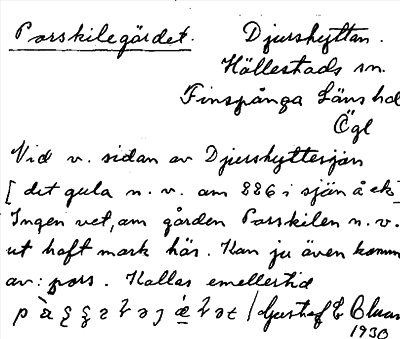 Porskilegärdet. Djurshyttan.
Hällestads sn.
Finspånga Läns hd
Ögl
Vid v. sidan av Djurshyttesjön
[det gula n. v. om 886 i sjön å ek]
Ingen vet, om gården Porskilen n. v.
ut haft mark här. Kan ju även komm
av: pors. Kallas emellertid
Gustaf E Bluu
1930